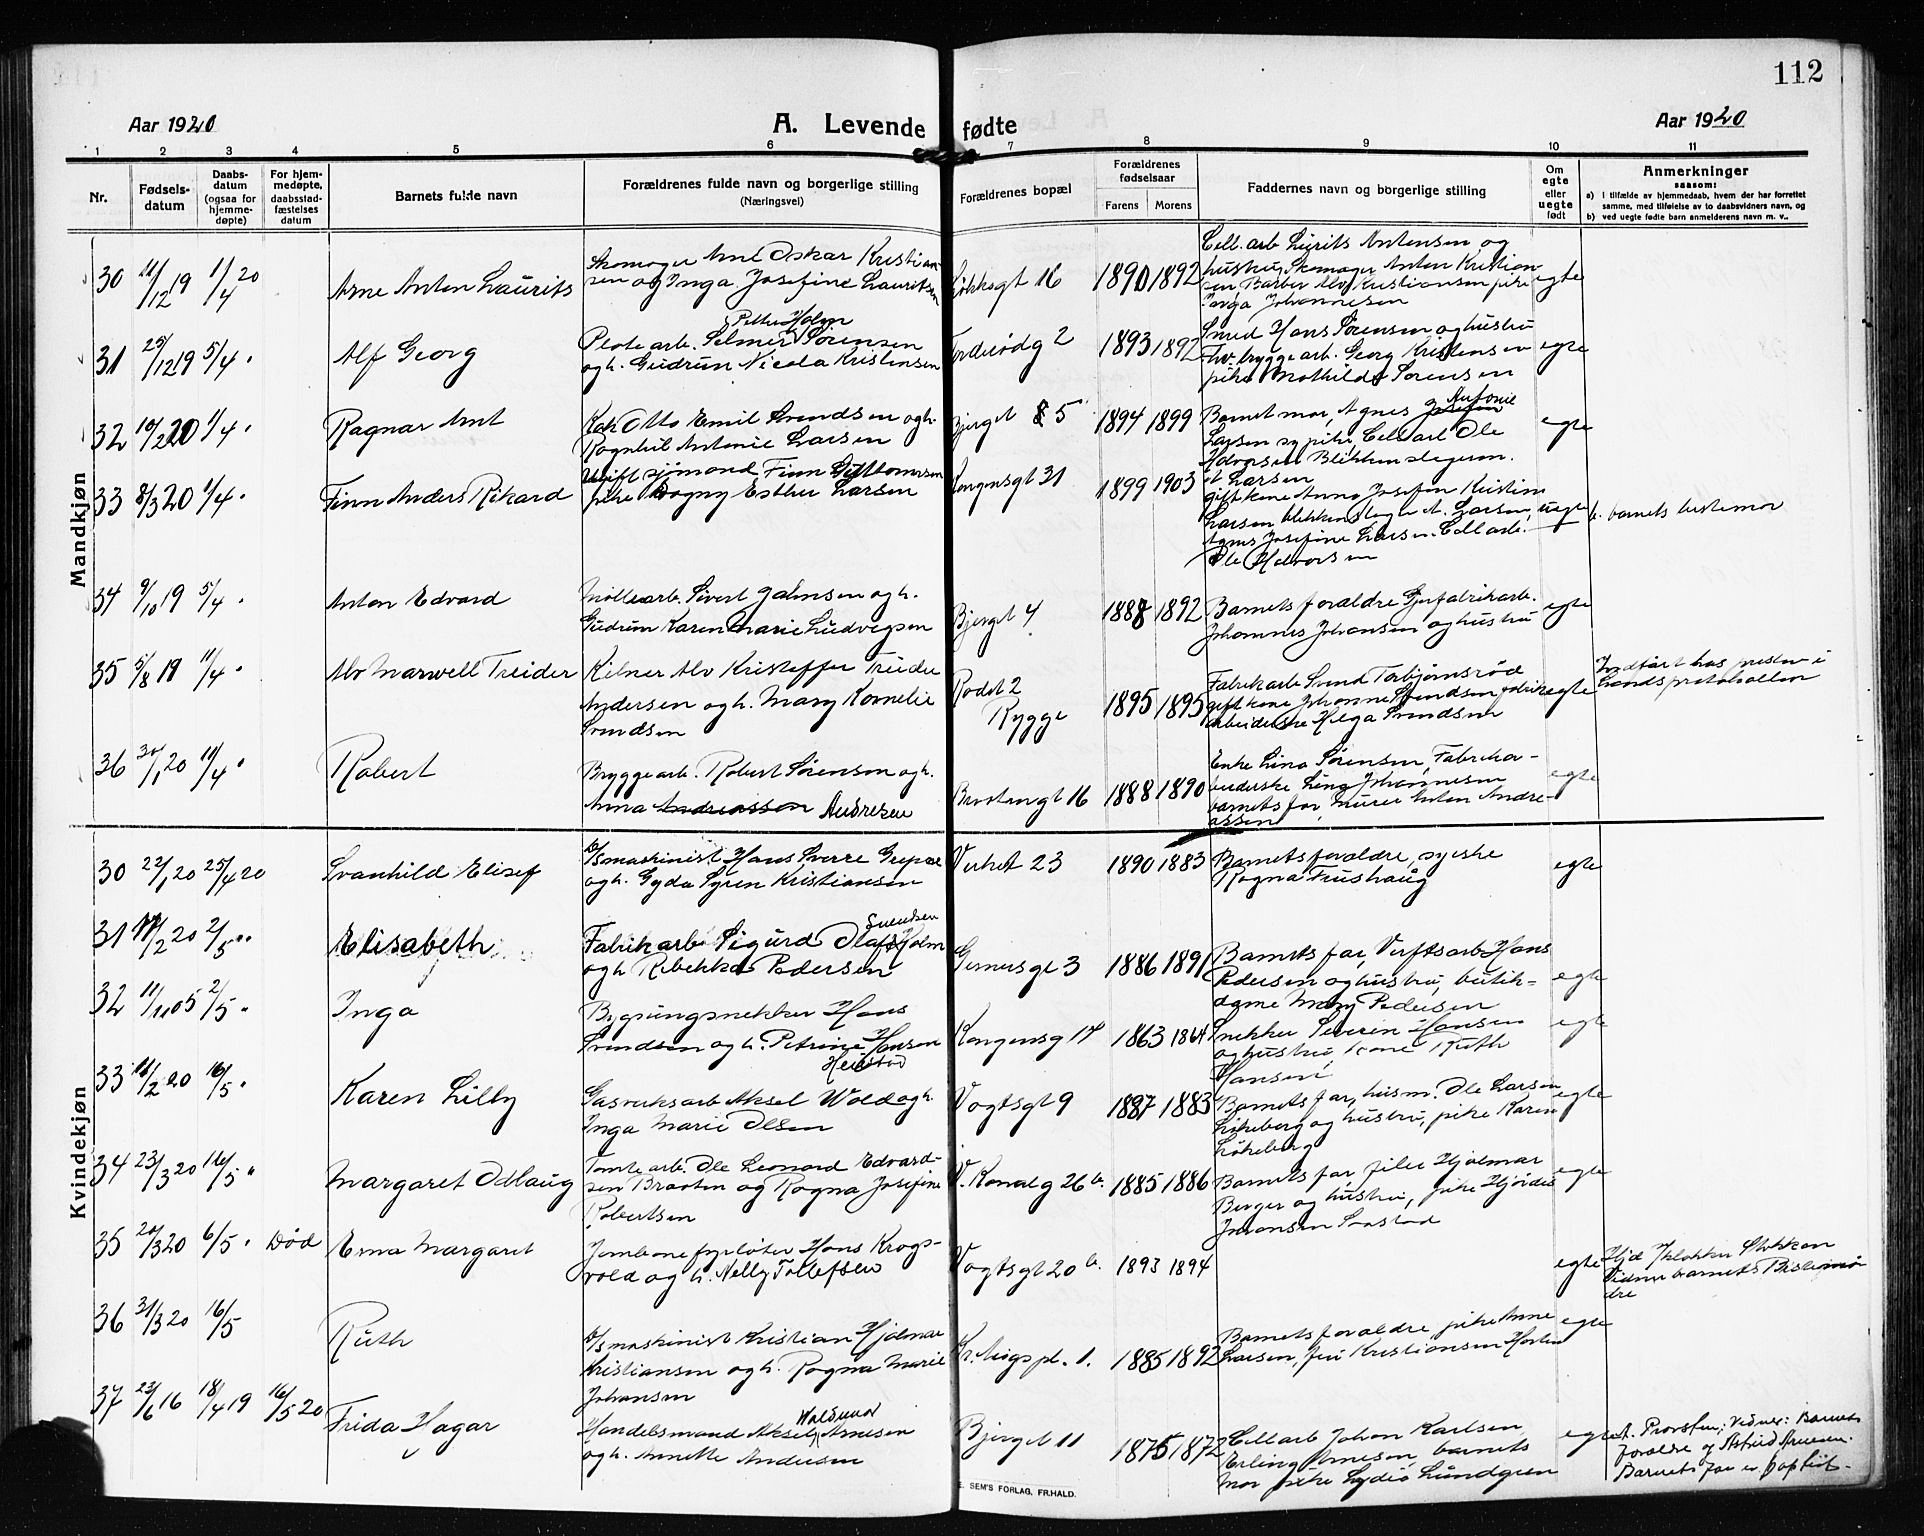 112
Aar 1920
A. Levende fødte
Aar 1920
1 2 3 4 5 6 7 8 9 10 11
Nr.
Fødsels-
datum
Daabs-
datum
(ogsaa for
hjemme-
døpte)
For hjem-
medøpte,
daabsstad-
fæstelses
datum
Barnets fulde navn
Forældrenes fulde navn og borgerlige stilling
(Næringsvei)
Forældrenes bopæl
Forældrenes
fødselsaar
Farens Morens
Faddernes navn og borgerlige stilling
Om
egte
eller
uegte
født
Anmerkninger
saasom:
a) I tilfælde av hjemmedaab, hvem der har forrettet
samme, med tilføielse av to daabsvidners navn, og
b) ved uegte fødte barn anmelderens navn m. v..
Mandkjøn
30 21/12 19 1/4 20 Arne Anton Laurits
Skomager Arne Oskar Kristian-
sen og Inga Josefine Lauritsen
1890 1892
Cell. arb Lurits Antensen og
hustru, Skomager Anton Kristian
sen Barber Alv Kristiansen pike
Johannesen
egte
31 25/12 19 5/4 " Alf Georg
Petter Holm
Plate arb. Selmer Sørensen
og h. Gudrun Nicola Kristensen
1893 1892
Smed Hans Sørensen og hustru
Fhv. bryggearb. Georg Kristensen
pike Mathilde Sørensen
egte
32 10/2 20 1/4 " Ragnar Arnt
Kok Otto Emil Svendsen og h.
Ragnhil Antonie Larsen
Bjerget 5
1894 1899
Barnet mor, Agnes Josefin Antonie
Larsen sypike, Cell arb Ole
Halvorsen Blikkenslagersv.
Larsen
egte
33 8/3 20 1/4 " Finn Anders Rikard
Ugift sjømand Finn
pike Dagny Esther Larsen
Kongensgt 31
1899 1903
gift kone Anna Josefin Kristine
Larsen blikkenslager A. Larsen,
Agnes Josefine Larsen. Cell arb.
Ole Halvorsen
uegte
b. barnets bestemor
34 9/10 19 5/4 " Anton Edvard
Møllearb. Sivert Johnsen og h.
Gudrun Karen Marie Ludvigsen
Bjerget 4
1888 1892
Barnets forældre Gjerfabrikarb.
Johannes Johansen og hustru
egte
35 5/8 19 11/4 " Alv Marwell Treider
Kelner Alv Kristoffer Treider
Andersen og h. Mary Kornelie
Svendsen
Rodst 2
Rygge
1895 1895
Fabrikarb Svend Torbjørnsrød
gift kone Johanne Svendsen fabrik
arbeiderske Helga Svendsen
egte
Indført hos presten i
Landsprotokollen
36 30/1 20 11/4 " Robert
Bryggearb. Robert Sørensen og h.
Anna Andreassen Andresen
16
1888 1890
Enke Lina Sørensen, Fabrikar-
beiderske Lina Johannesen
barnets far, murer Anton Andre-
assen
egte
Kvindekjøn
30 22/1 20 25/4 20 Svanhild Elisef
D/S maskinist Hans Sverre Grepne
og h. Gyda Syren Kristiansen
Verket 23
1890 1883
Barnets forældre, syerske
Ragna Frushaug
egte
31 2/2 20 2/5 " " Elisabeth
Svendsen
Fabrikarb Sigurd Olaf Holm
og h. Rebekka Pedersen
Gernersgt 3
1886 1891
Barnets far, Verftsarb Hans
Pedersen og hustru, butik-
dame Mary Pedersen
egte
32 11/11 05 2/5 " Inga
Bygningsnekker Hans
Svendsen og h. Petrine Hansen
Kongensg 17
1863 1864
Snekker Severin Hansen
og hustru, kone Ruth
Hansen
egte
33 11/2 20 16/5 " Karen Lilly
Heistad
Gasverksarb Aksel Wold og h.
Inga Marie Olsen
Vogtsgt 9
1887 1883
Barnets far, husm. Ole Larsen
Løkeberg og hustru, pike Karen
Løkeberg
egte
34 23/3 20 16/5 " Margaret Odlaug
Tomtearb. Ole Leonard Edvard-
sen Braaten og Ragna Josefine
Robertsen
V. Kanalg 26 b.
1885 1886
Barnets far, filer Hjalmar
Berger og hustru, pike Hjørdis
Johansen
egte
35 20/3 20 6/5 " Død Erna Margaret
Jernbanefyrbøter Hans Krogs-
vold og h. Nelly Tollefsen
Vogtsgt 20 b.
1893 1894
egte
Hjd Klokker Stokkan
Vidner barnets Bestemø
dre
36 31/3 20 16/5 Ruth
D/S maskinist Kristian Hjalmar
Kristiansen og h. Ragna Marie
Johansen
pl. 1.
1885 1892
Barnets forældre, pike Anne
Larsen, Kristiansen
egte
37 23/6 16 18/4 19 16/5 20 Frida Hagar
Waldemar
Handelsmand Aksel Arnesen
og h. Annette Andersen
Bjerget 11
1875 1872
Cell arb Johan Karlsen
Erling Arnesen, barnets
mor pike Lydia Lundgren
egte
a. Provsten; vidner: Barnets
forældre og Astrid Arnesen.
Barnets far er baptist.
E. SEM'S FORLAG, FR.HALD.